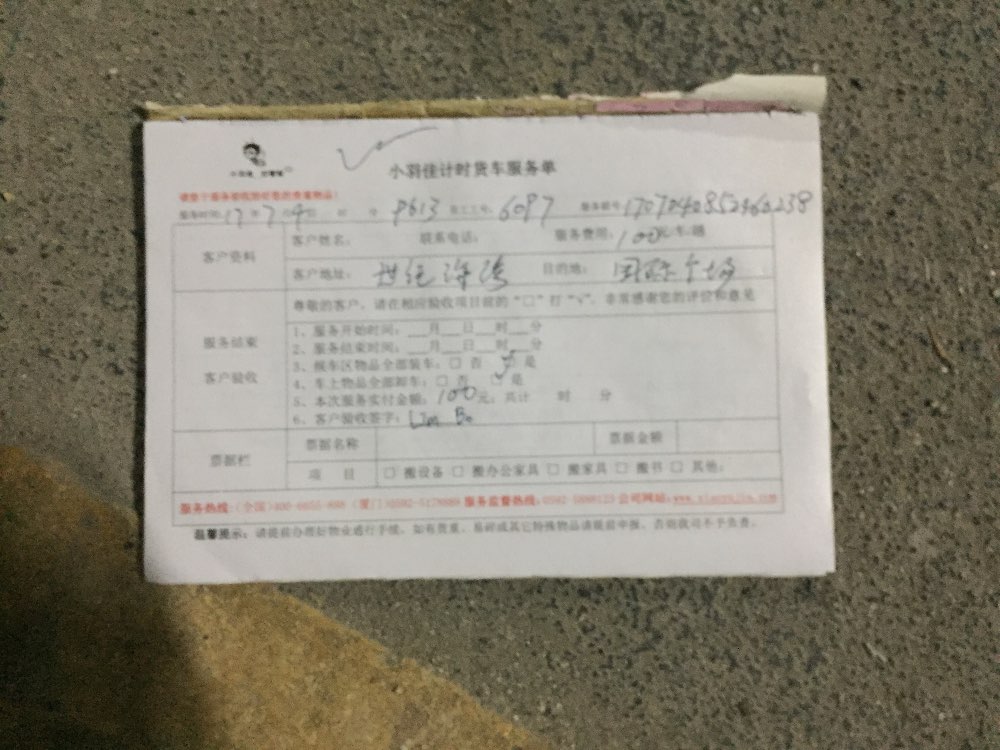 小羽佳计时货车服务单
服务时间: 17 年 7 月 4 日 时 分 P613 员工工号: 6097
客户资料
客户姓名: 联系电话: 服务费用: 100元/车/趟
客户地址: 世纪 目的地: 国际广场
尊敬的客户,请在相应验收项目前的“□”打“√”,非常感谢您的评价和意见
服务结束
客户验收
1、服务开始时间:___月___日___时___分
2、服务结束时间:___月___日___时___分
3、候车区物品全部装车:□ 否 □ 是
4、车上物品全部卸车:□ 否 □ 是
5、本次服务实付金额:100元;共计 时 分
6、客户验收签字:
票据栏
票据名称 票据金额
项 目 □ 搬设备 □ 搬办公家具 □ 搬家具 □ 搬书 □ 其他:
服务热线:(全国)400-6655-888 (厦门)0592-5178889 服务监督热线: 公司网址:www.xiaoyujia.com
温馨提示:请提前办理好物业通行手续,如有贵重、易碎或其它特殊物品请提前申报,否则我司不予负责。